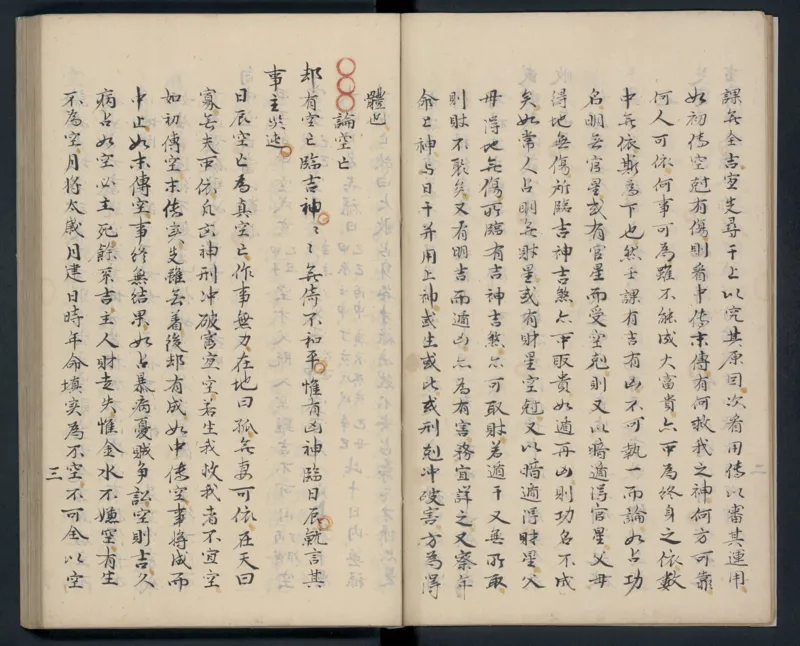 課無全吉宜先尋干上以究其原因次看用傳以審其運用
如初傳空尅有傷則看中傳末傳有何救我之神何方可靠
何人可依何事可為雖不能成大富貴亦可為終身之依數
中無依斯為下也然壬課有吉有凶不可執一而論如占功
名明無官星或有官星而受空尅則又以暗遁得官星父母
得地無傷所臨吉神吉煞亦可取貴如遁再凶則功名不成
矣如常人占明無財星或有財星空尅又以暗遁得財星父
母得地無傷所臨有吉神吉煞亦可取財若遁干又無所取
則財不聚矣又有明吉而遁凶亦為有害務宜詳之又察年
命上神与日干并用上神或生或比或刑尅冲破害方為得
體也
論空亡
却有空亡臨吉神〻〻無倚不和平惟有凶神臨日辰就言其
事主災迍
日辰空亡為真空亡作事無力在地曰孤無妻可依在天曰
寡無夫可依凡凶神刑冲破害宜空若生我救我者不宜空
如初傳空末傳實先雖無着後却有成如中傳空事將成而
中止如末傳空事終無結果如占暴病憂賊爭訟空則吉久
病占如空必主死餘榮吉主人財走失惟金水不嫌空有生
不為空月將太歲月建日時年命填實為不空不可全以空
三